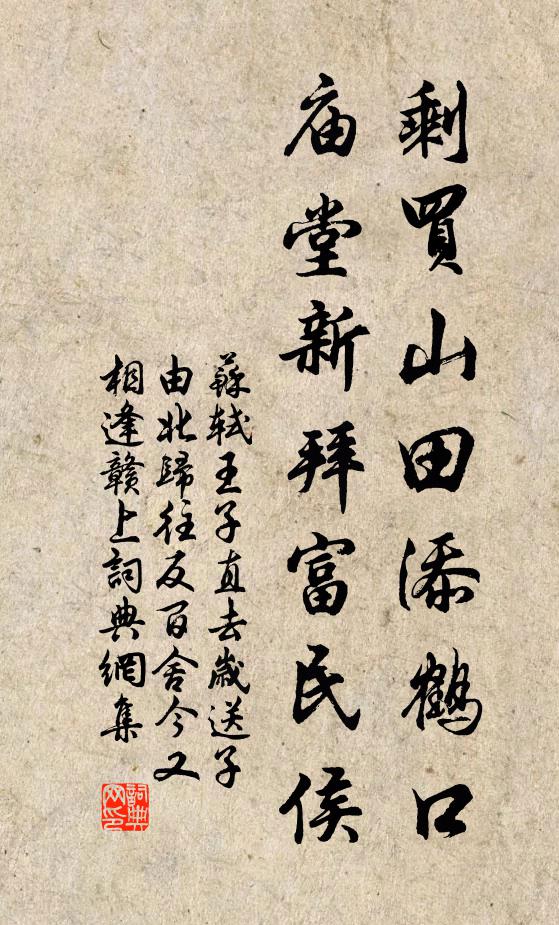 剩買山田添鶴口
庙堂新拜富民侯
蘇軾王子直去歲送子
由北歸往反百舍今又
相逢贛上詞典網集
詞典网印